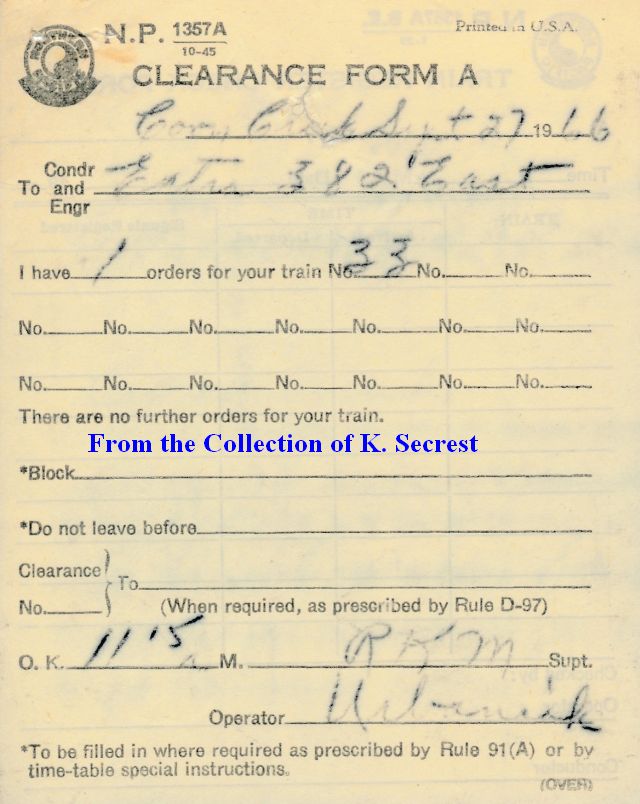 NORTHERN PACIFIC
N.P. 1357A
10-45
Printed in U.S.A.
CLEARANCE FORM A
Sept 27 1966
Condr
To and Extra 382 East
Engr
I have 1 orders for your train No. 33 No. No.
No. No. No. No. No. No. No.
No. No. No. No. No. No. No.
There are no further orders for your train.
From the Collection of K. Secrest
*Block
*Do not leave before
Clearance
To
No. (When required, as prescribed by Rule D-97)
O. K. 11 15 a M. R K M Supt.
Operator
*To be filled in where required as prescribed by Rule 91(A) or by
time-table special instructions.
(OVER)